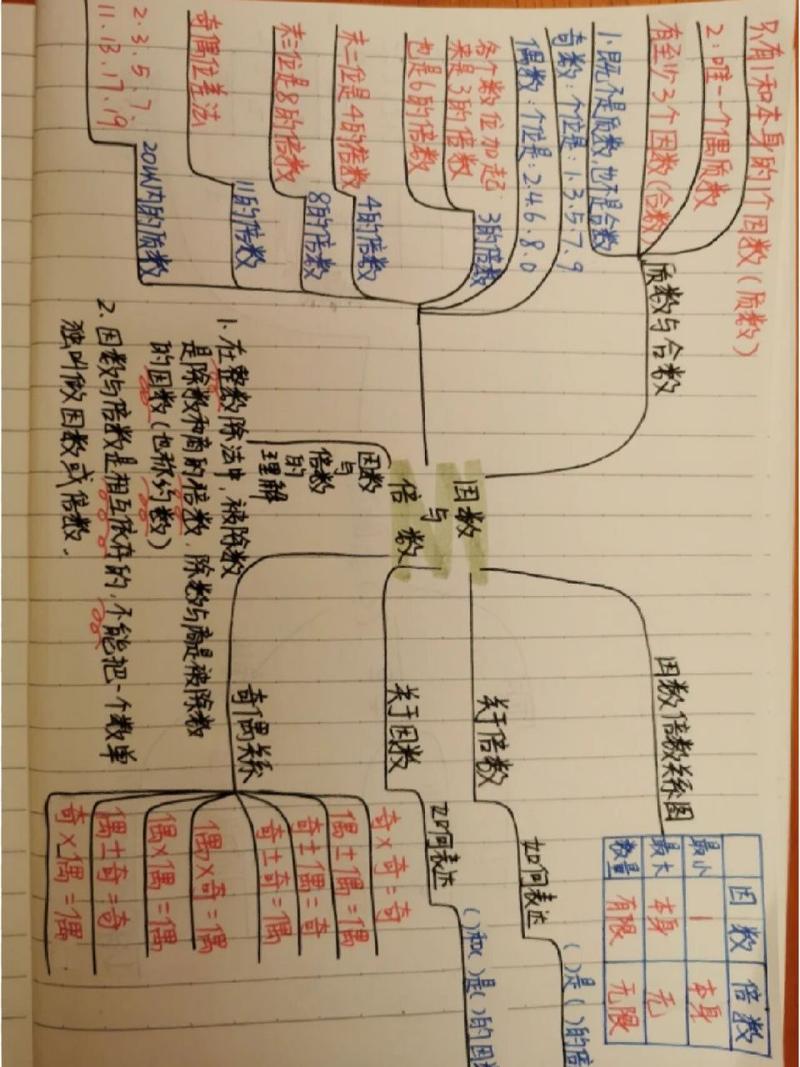 因数
与
倍数
质数与合数
只有1和本身的1个因数(质数)
2:唯一个偶质数
有至少3个因数(合数)
1:既不是质数,也不是合数
奇数:个位是:1.3.5.7.9
偶数:个位是:2.4.6.8.0
3的倍数
各个数位加起
来是3的倍数
也是6的倍数
4的倍数
末二位是4的倍数
8的倍数
末三位是8的倍数
11的倍数
奇偶位差法
20以内的质数
2.3.5.7.
11.13.17.19
因数
与
倍数
的
理解
1.在整数除法中,被除数
是除数和商的倍数,除数与商是被除数
的因数(也称约数)
2.因数与倍数是相互依存的,不能把一个数单
独叫做因数或倍数.
因数倍数关系图
因数 倍数
最小 1 本身
最大 本身 无
数量 有限 无限
关于倍数
如何表达
( )是( )的倍
关于因数
如何表达
( )和( )是( )的因
奇偶关系
奇×奇=奇
偶±偶=偶
奇±偶=奇
奇±奇=偶
偶×奇=偶
偶×偶=偶
偶±奇=奇
奇×偶=偶